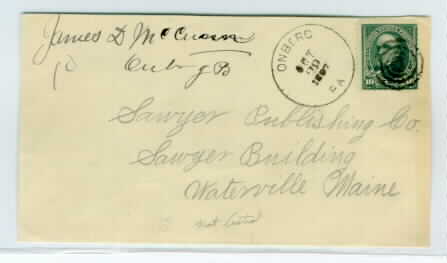 James D McCunn
Onberg Pa
ONBERG
OCT
20
1897
PA
10
Sawyer Publishing Co.
Sawyer Building
Waterville Maine
not listed